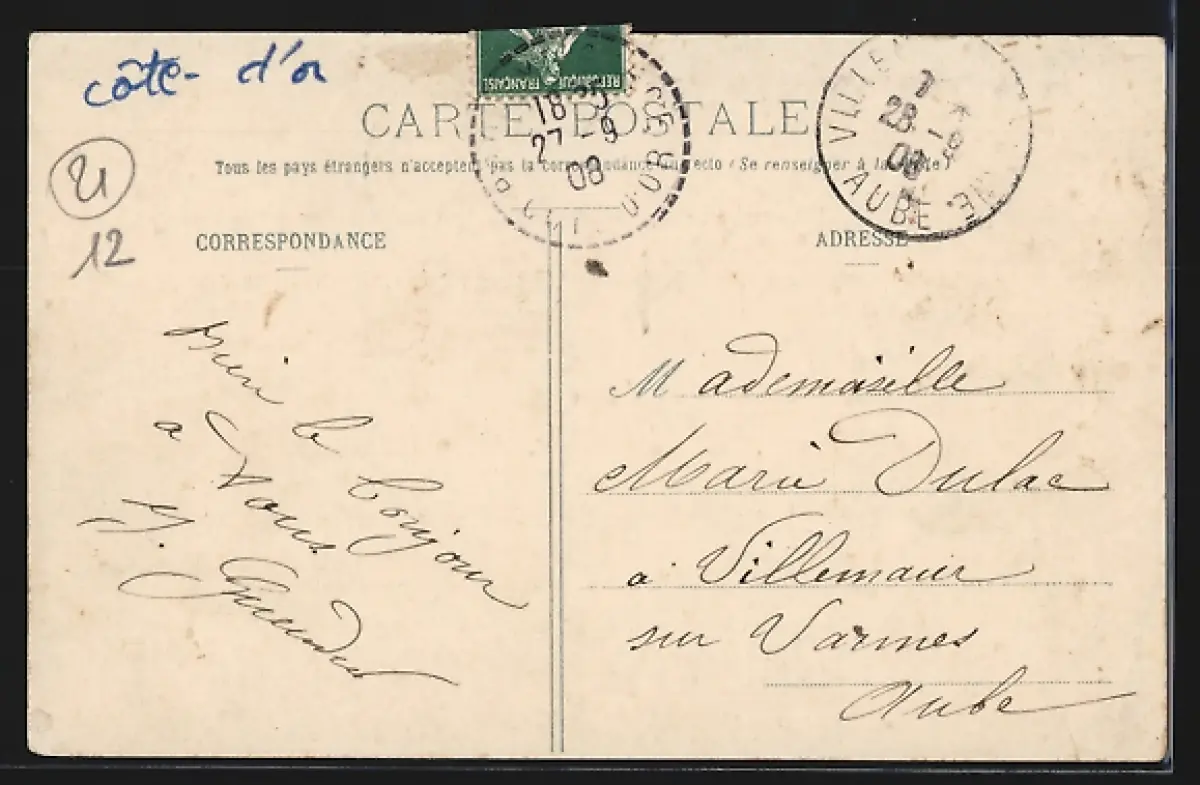 côte- d'or
21
12
RÉPUBLIQUE FRANÇAISE
18-35
27-9
08
CÔTE D'OR
7
28-9
08
AUBE
CARTE POSTALE
Tous les pays étrangers n'acceptent pas la correspondance au recto (Se renseigner à la Poste)
CORRESPONDANCE
Bien le bonjour
a Vous
ADRESSE
Mademoiselle
Marie Dulac
a Villemaur
sur Vannes
Aube